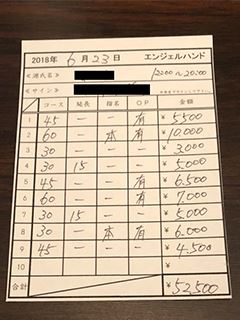 2018年 6月23日 エンジェルハンド
≪源氏名≫ 12:00〜20:00
≪サイン≫
コース 延長 指名 OP 金額
1 45 ー ー 有 ¥5500
2 60 ー 本 有 ¥10,000
3 30 ー ー ー ¥3,000
4 30 15 ー ー ¥5,000
5 45 ー ー 有 ¥6,500
6 60 ー ー 有 ¥7,000
7 30 15 ー ー ¥5,000
8 30 ー 本 有 ¥6,000
9 45 ー ー ー ¥4,500
10 ¥
合計 ¥52,500